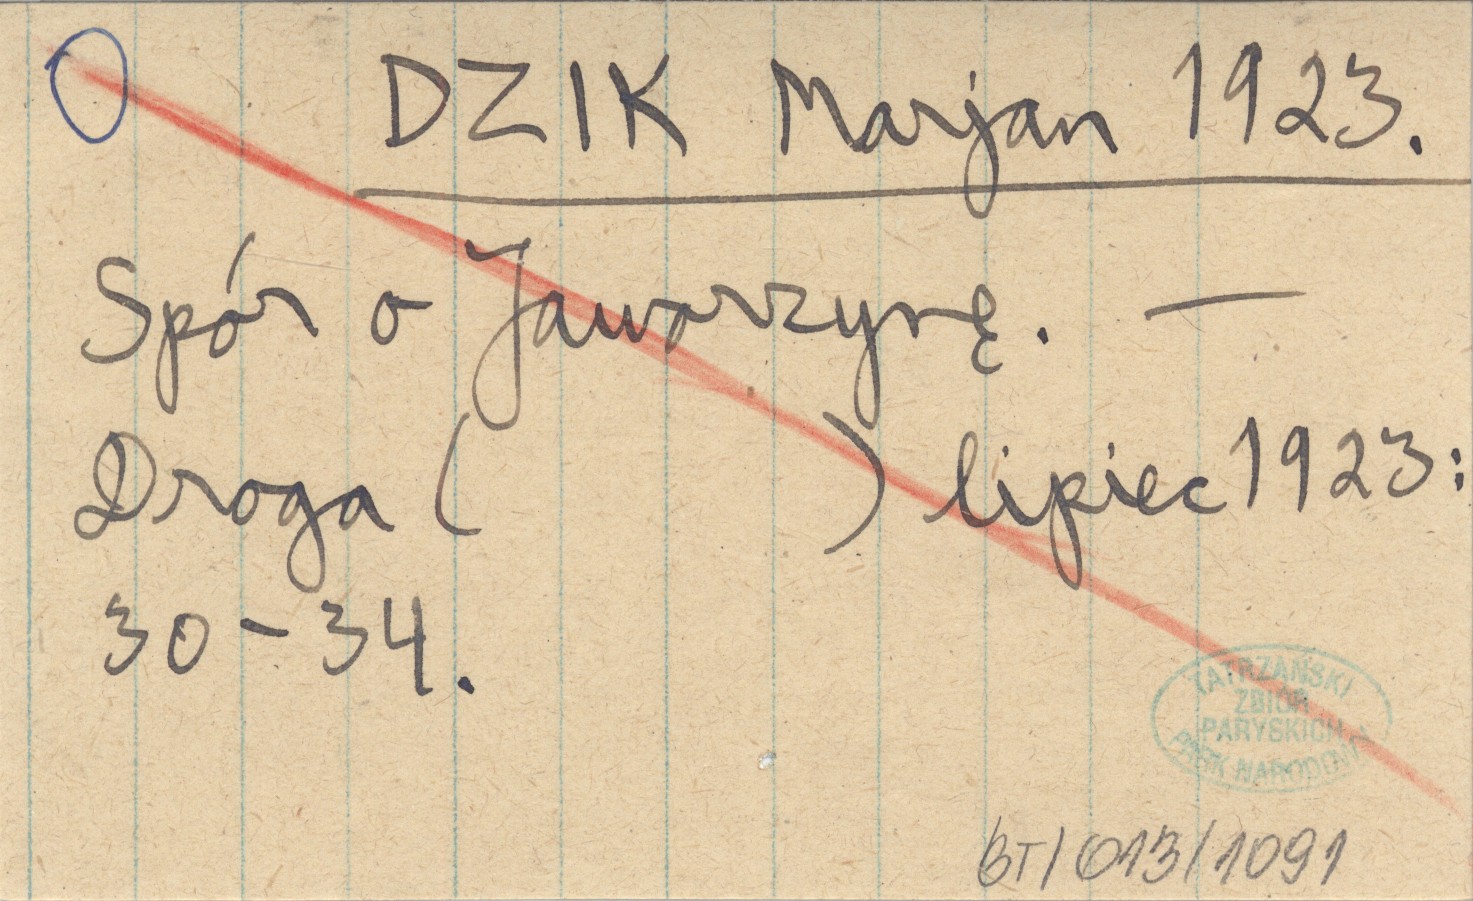 DZIK Marjan 1923.
Spór o Jaworzynę. —
Droga ( ) lipiec 1923:
30-34.
TATRZAŃSKI
ZBIÓR
PARYSKICH
PARK NARODOWY
BT/013/1091